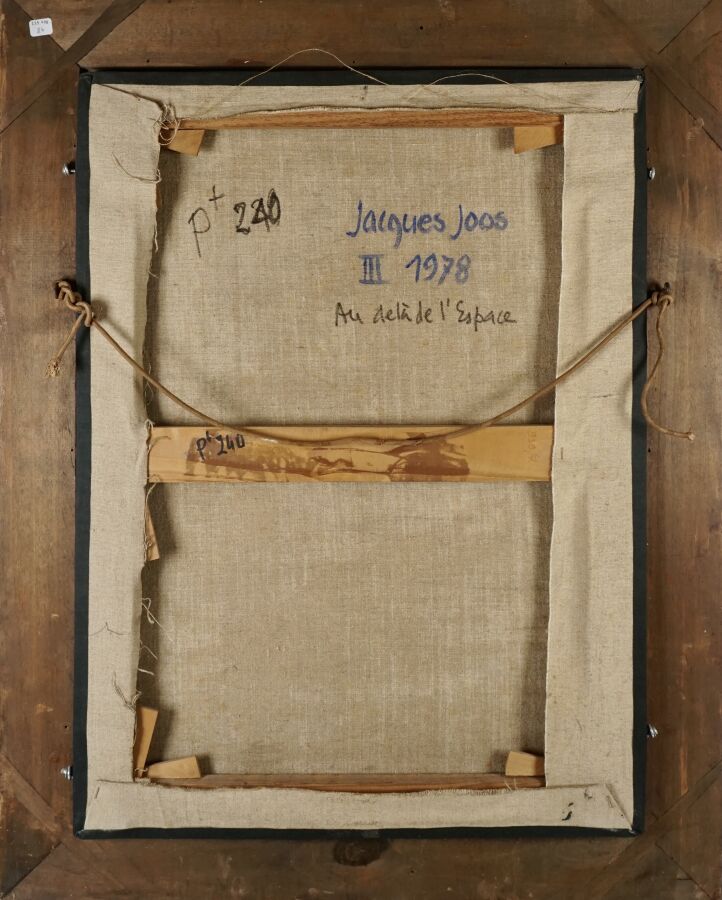 p+ 240
Jacques Joos
III 1978
Au delà de l'Espace
p+ 240